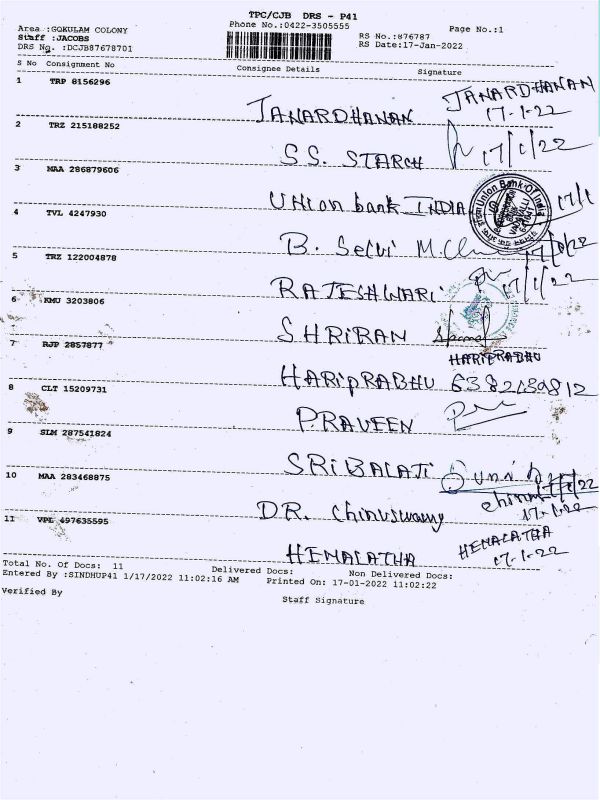 TPC/CJB DRS - P41
Area :GOKULAM COLONY
Phone No.:0422-3505555
Page No.:1
Staff :JACOBS
RS No.:876787
DRS No. :DCJB87678701
RS Date:17-Jan-2022
S No Consignment No Consignee Details Signature
1 TRP 8156296
JANARDHANAN JANARDHANAN
17-1-22
2 TRZ 215188252
SS. STARCH 17/1/22
3 MAA 286879606
Union bank INDIA 17/1
4 TVL 4247930
B. Selvi
5 TRZ 122004878
RAJESHWARI 17/1/22
6 KMU 3203806
SHRIRAN
7 RJP 2857877
HARIPRABHU
HARIPRABHU
8 CLT 15209731
PRAVEEN
9 SLM 287541824
SRI BALAJI
10 MAA 283468875
DR. Chinuswamy
17-1-22
11 VPL 497635595
HEMALATHA HEMALATHA
17-1-22
Total No. Of Docs: 11 Delivered Docs: Non Delivered Docs:
Entered By :SINDHUP41 1/17/2022 11:02:16 AM Printed On: 17-01-2022 11:02:22
Verified By
Staff Signature